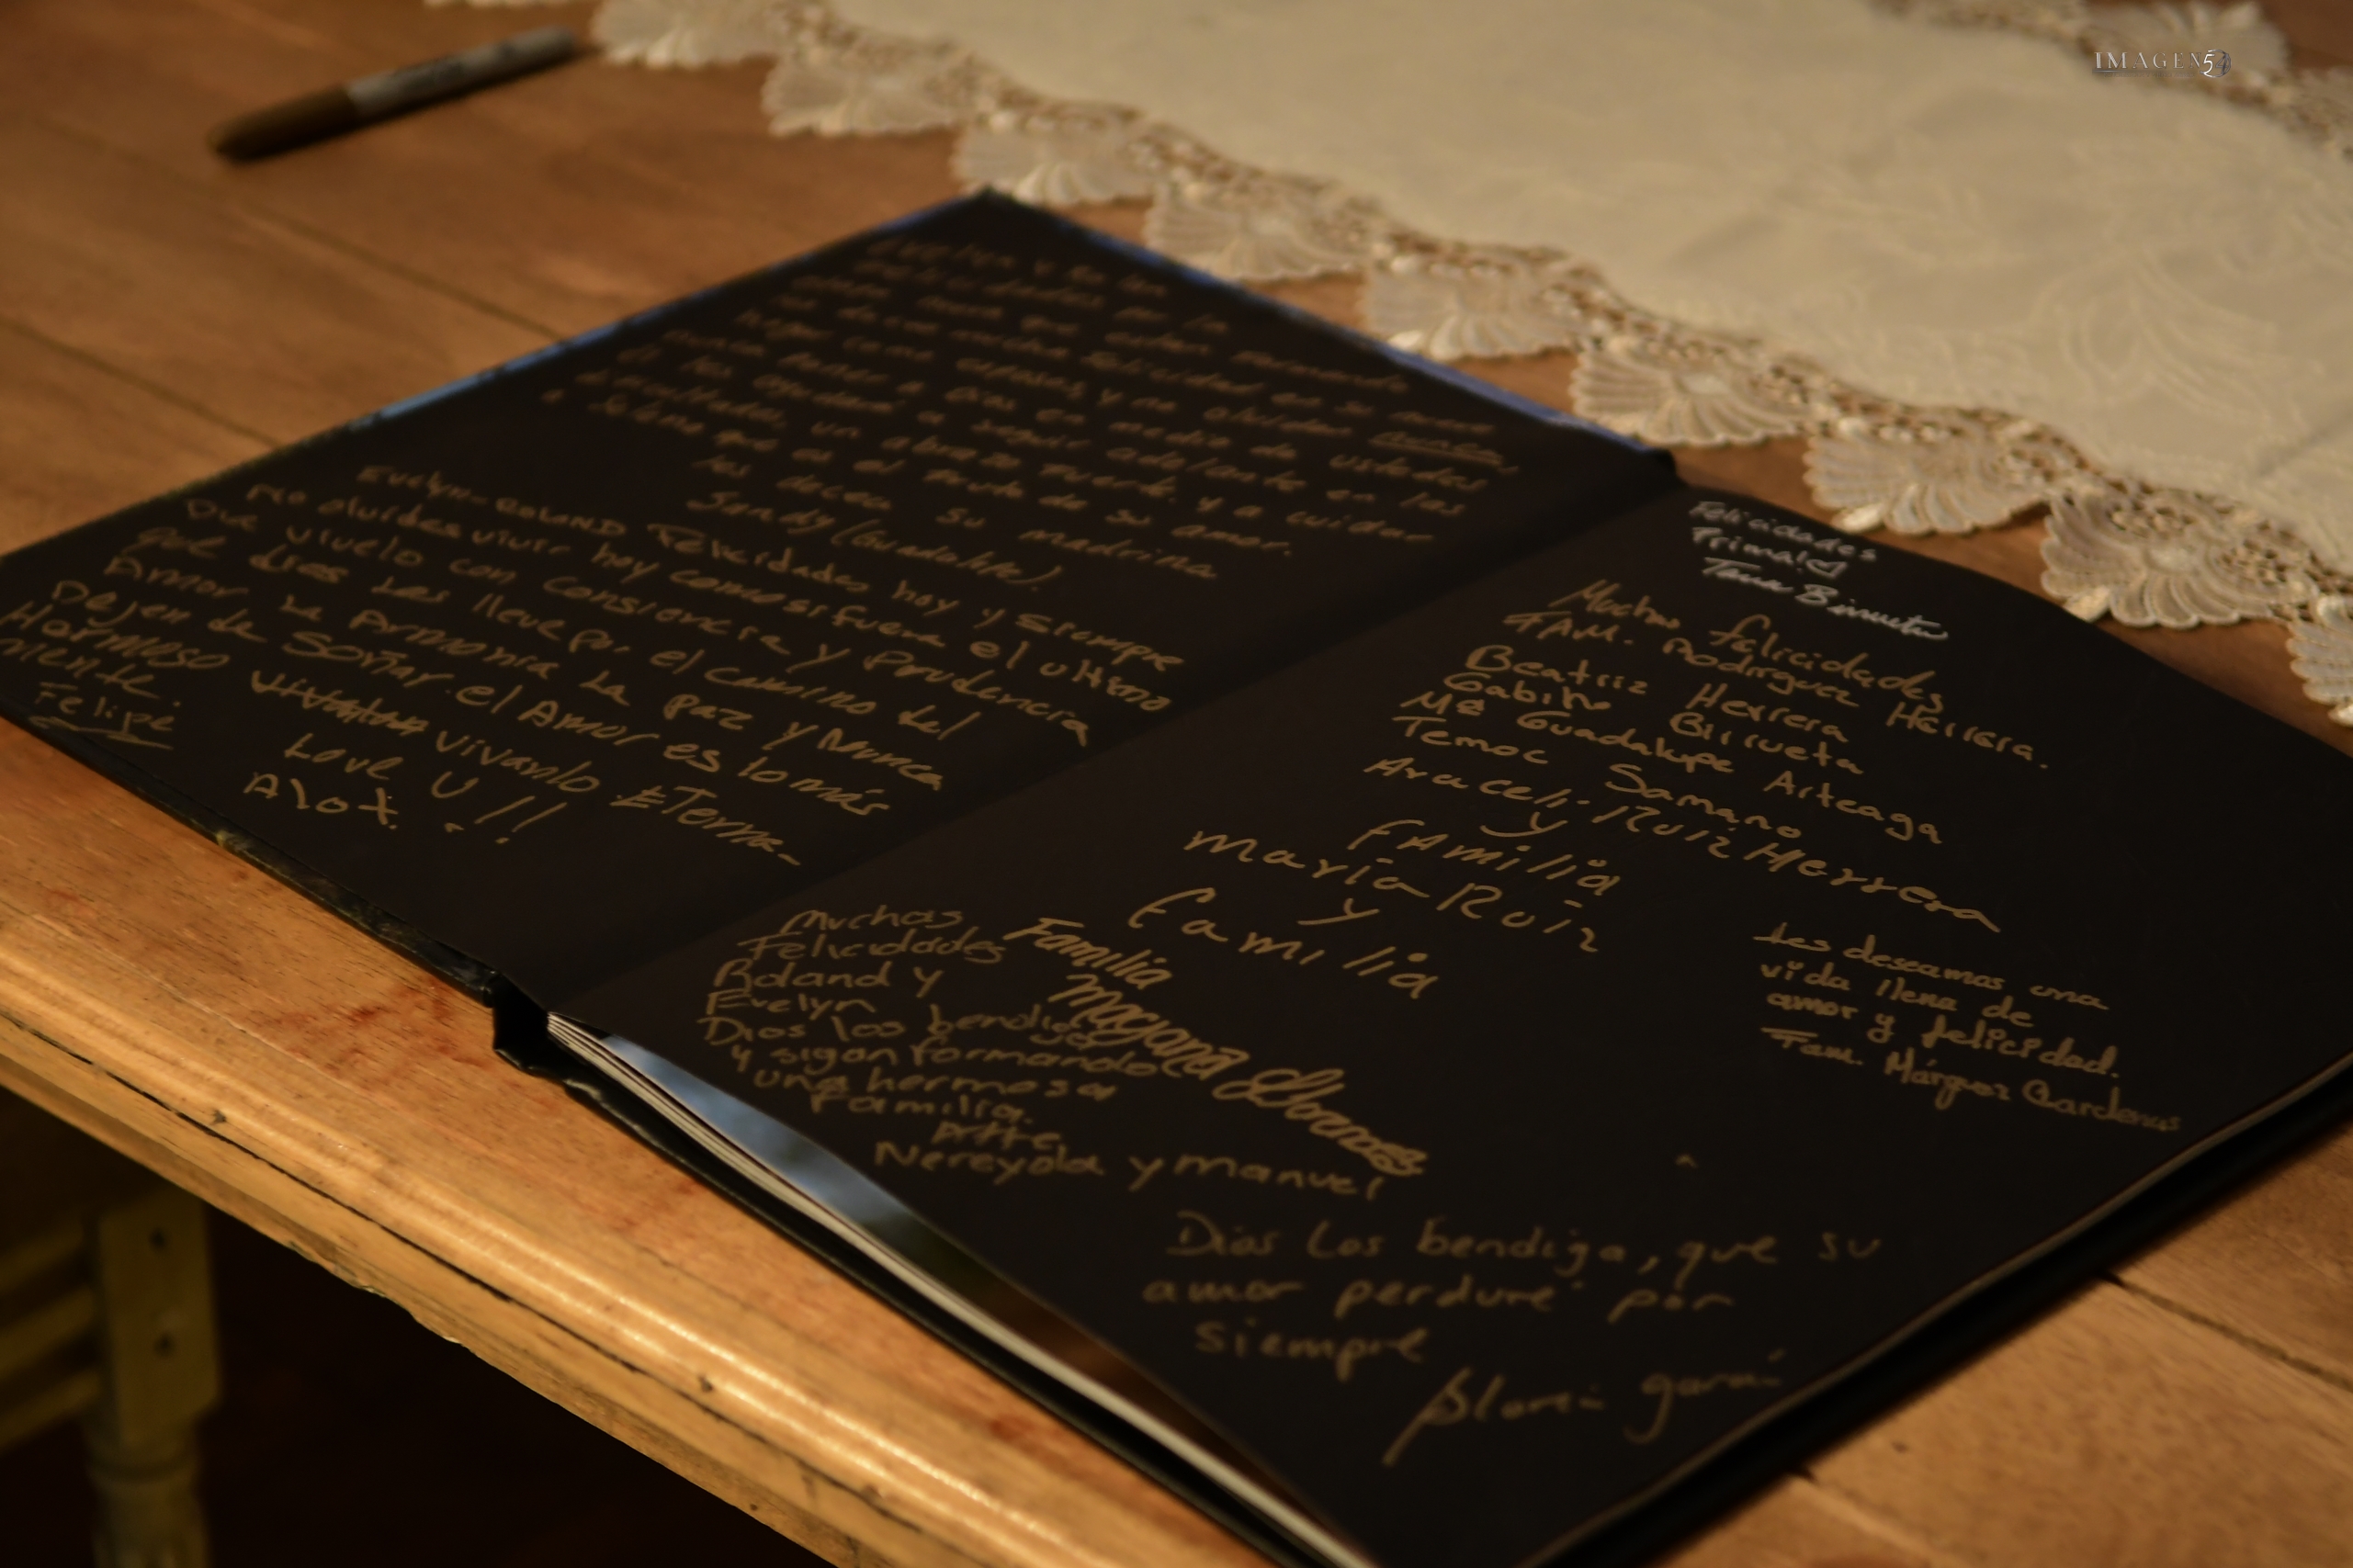 IMAGEN 54
Evelyn y Roland
Felicidades por la
nueva que están formando
les deseo mucha felicidad en su nuevo
hogar como esposos, y no olviden nunca,
poner a Dios en medio de ustedes
él los ayudará a seguir adelante en las
dificultades, un abrazo fuerte. y a cuidar
a que es el fruto de su amor.
les desea su madrina
Sandy (Guadalupe)
Evelyn - ROLAND Felicidades hoy y siempre
No olvides vivir hoy como si fuera el ultimo
Dia vivelo con consiencia y Prudencia
que dios Les lleve por el camino del
Amor la Armonia La paz y Nunca
Dejen de Soñar. el Amor es lo más
Hermoso vivanlo ETerna-
mente.
Felipe
Love U!!
Alex.
Felicidades
Prima!♡
Birrueta
Muchas felicidades
FAM. Rodriguez Herrera.
Beatriz Herrera
Gabino Birrueta
Mª Guadalupe Arteaga
Temoc Samano
Araceli Ruiz Herrera
y
FAmilia
maria Ruiz
y
Familia
Les deseamos una
vida llena de
amor y felicidad.
Fam. Márquez Cardenas
Muchas
Felicidades
Roland y
Evelyn
Dios los bendiga
y sigan formando
una hermosa
Familia.
Atte.
Nereyda y manuel
Familia
Magaña
Dios los bendiga, que su
amor perdure por
siempre
Gloria